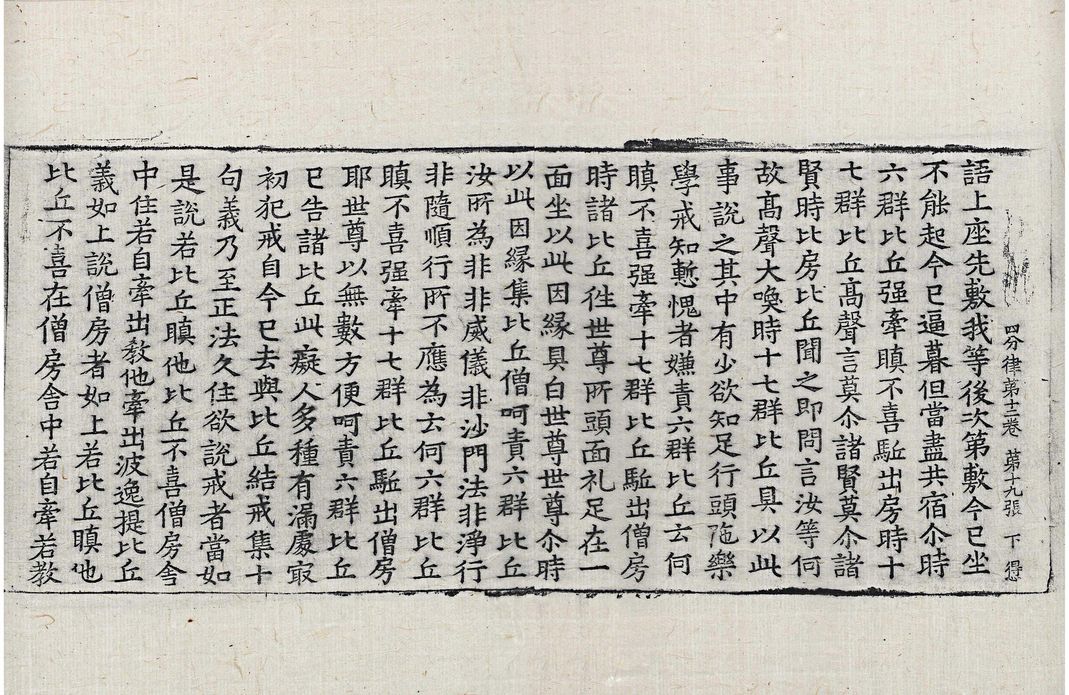 四分律第十二卷 第十九張 下 㥁
語上座先敷我等後次第敷今已坐
不能起今已逼暮但當盡共宿尒時
六群比丘强牽瞋不喜駈出房時十
七群比丘高聲言莫尒諸賢莫尒諸
賢時比房比丘聞之即問言汝等何
故高聲大喚時十七群比丘具以此
事說之其中有少欲知足行頭陁樂
學戒知慙愧者嫌責六群比丘云何
瞋不喜强牽十七群比丘駈出僧房
時諸比丘徃世尊所頭面礼足在一
面坐以此因緣具白世尊世尊尒時
以此因緣集比丘僧呵責六群比丘
汝所為非非威儀非沙門法非淨行
非隨順行所不應為云何六群比丘
瞋不喜强牽十七群比丘駈出僧房
耶世尊以無數方便呵責六群比丘
已告諸比丘此癡人多種有漏處㝡
初犯戒自今已去與比丘結戒集十
句義乃至正法久住欲說戒者當如
是說若比丘瞋他比丘不喜僧房舍
中住若自牽出教他牽出波逸提比丘
義如上說僧房者如上若比丘瞋他
比丘不喜在僧房舍中若自牽若教